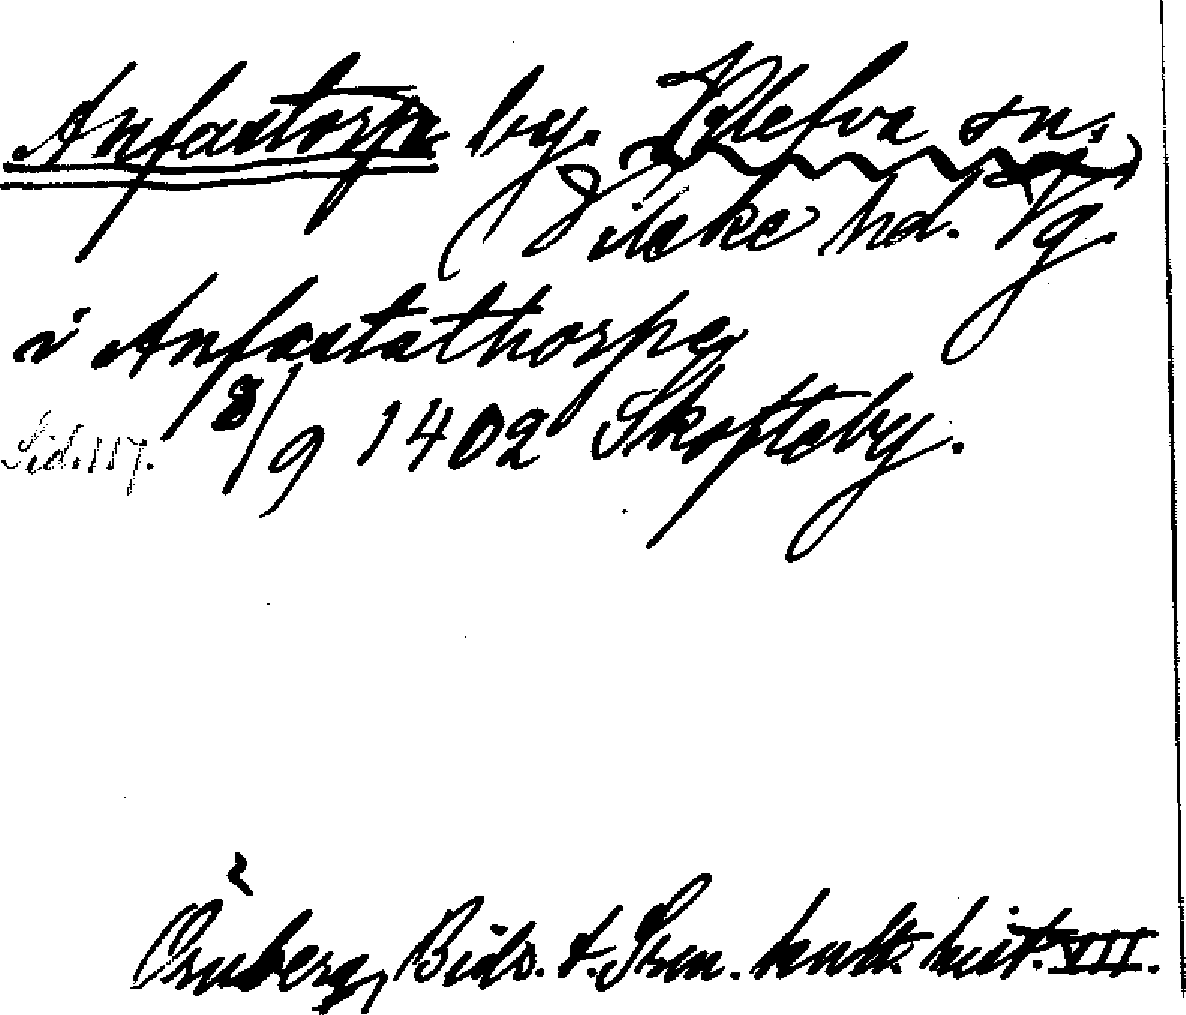 Anfastorp by. Klefva sn.
(Vilske hd. Vg.
i Anfastathorpe
Sid. 117. 8/9 1402 Skofteby.
Örnberg, Bidr. t. Sven. kult. hist. VII.